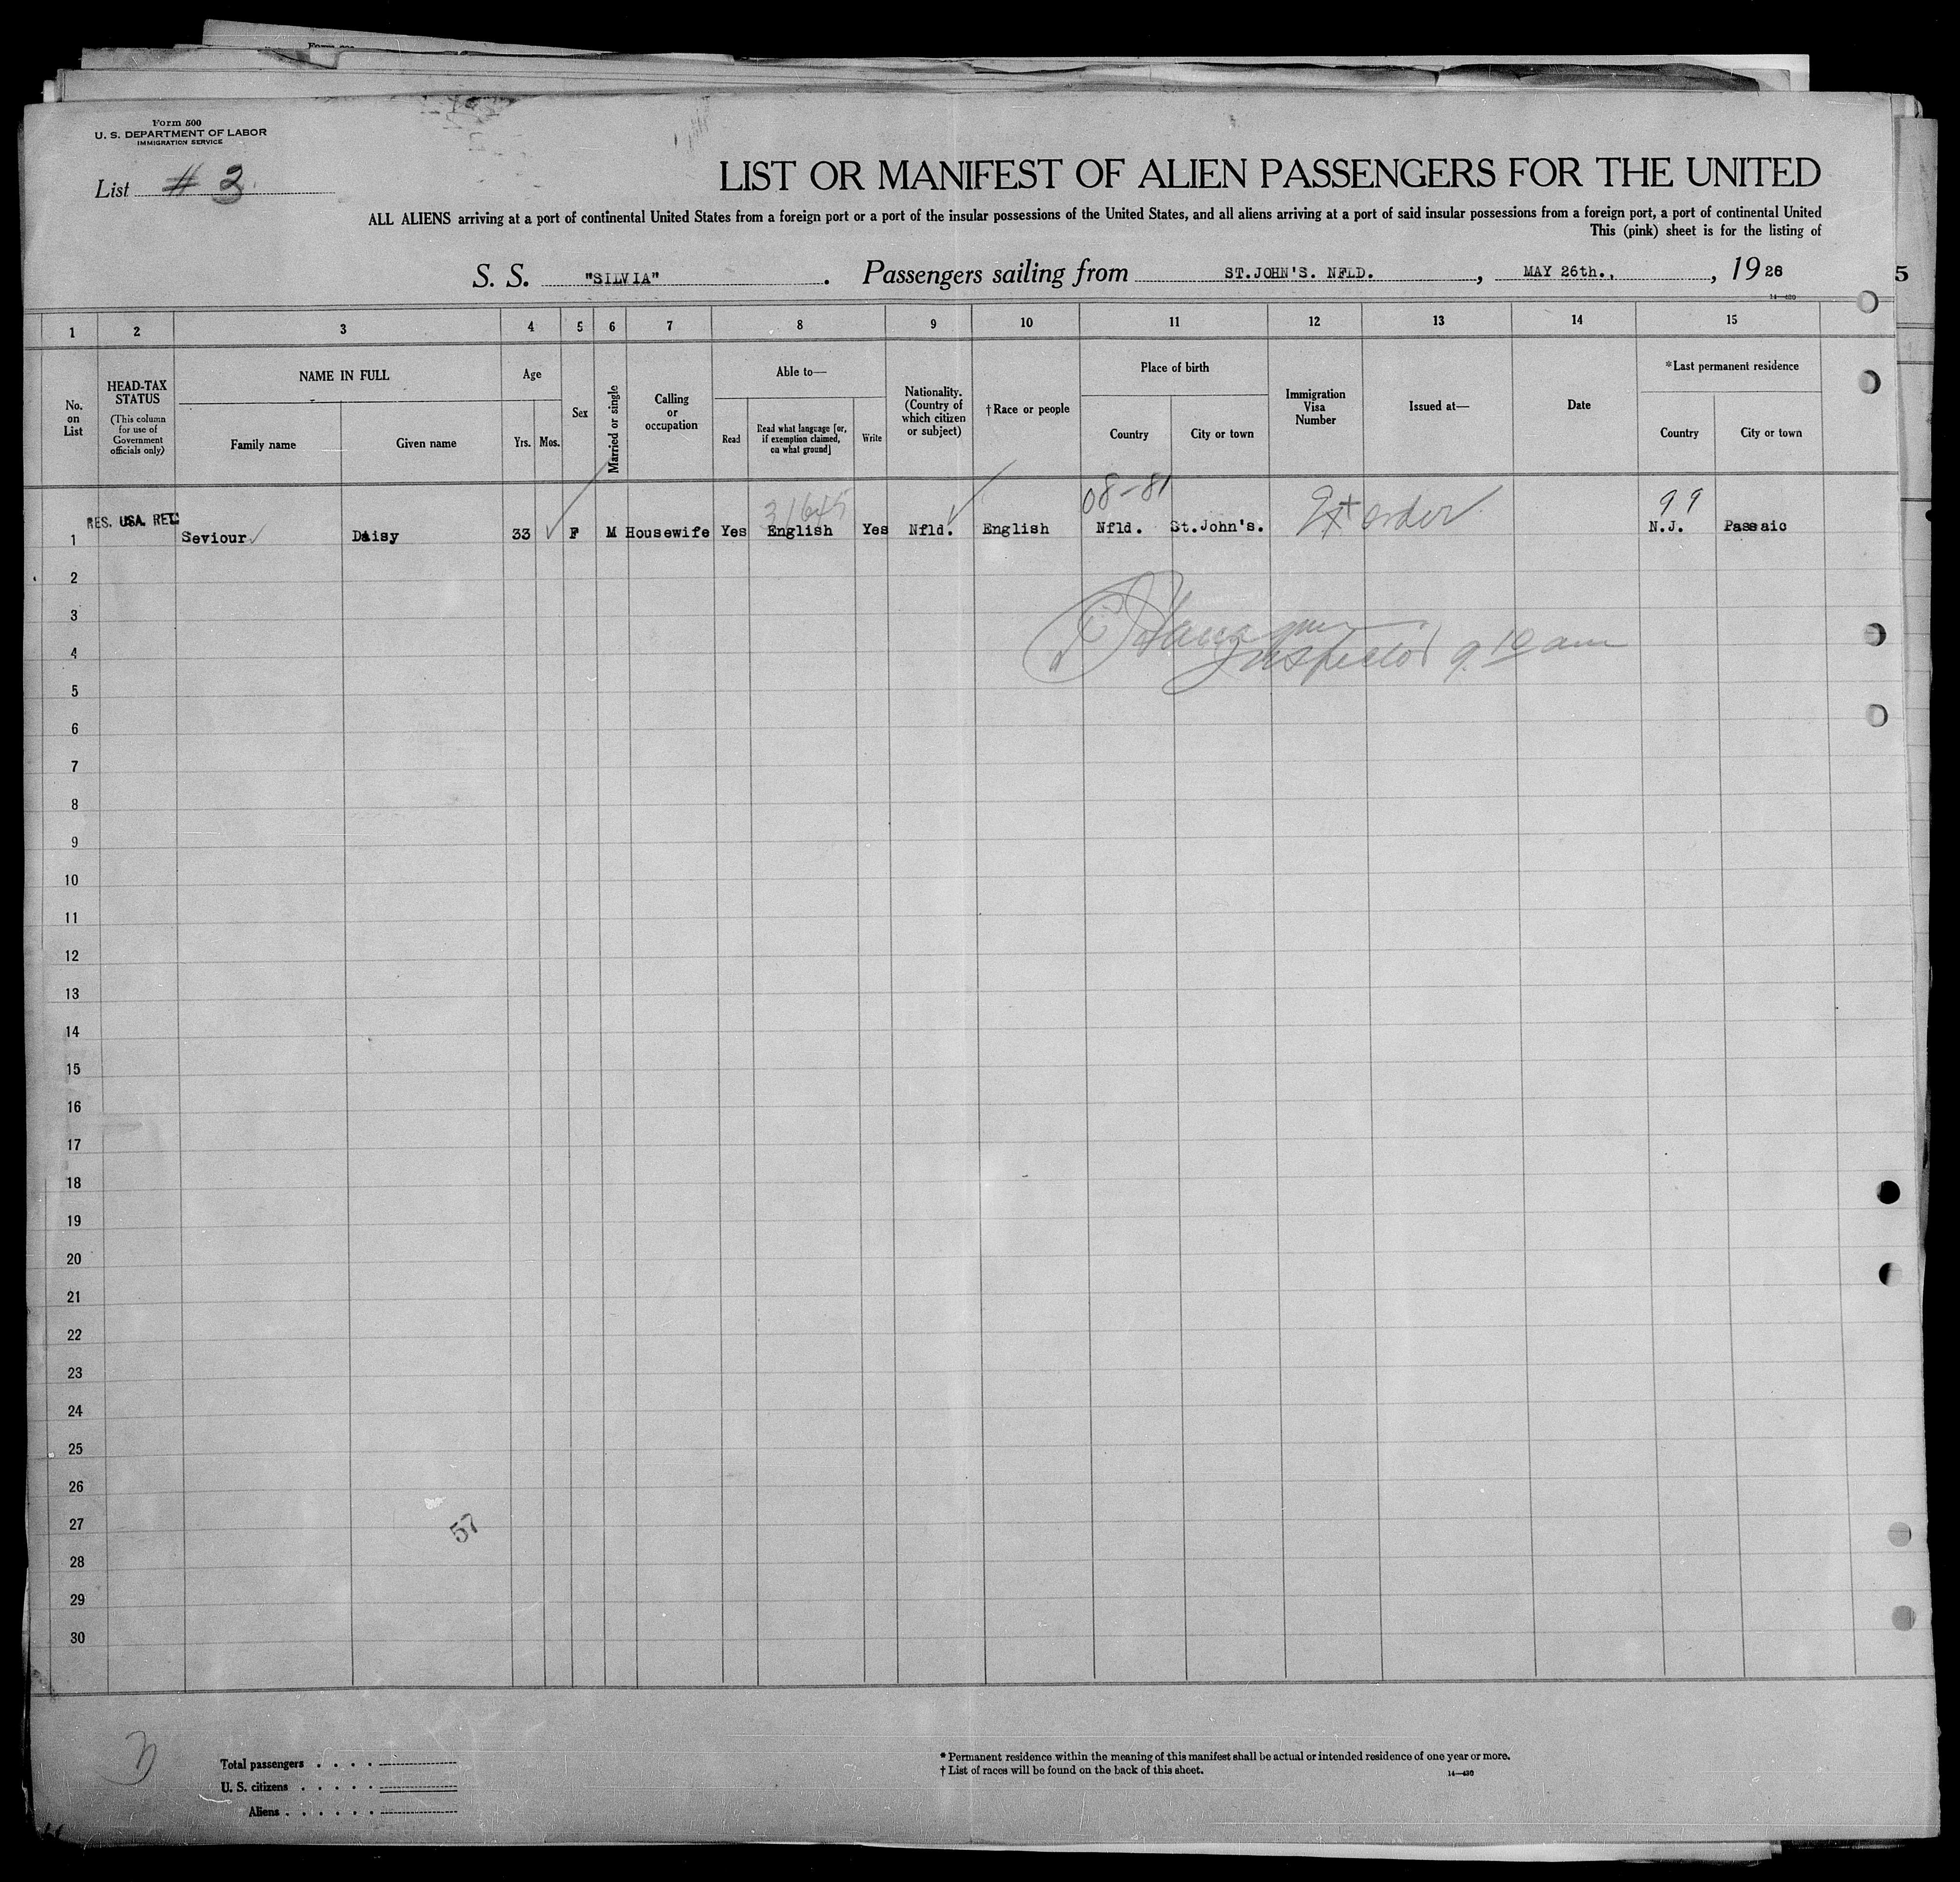 Form 500
U. S. DEPARTMENT OF LABOR
IMMIGRATION SERVICE
List # 3
LIST OR MANIFEST OF ALIEN PASSENGERS FOR THE UNITED
ALL ALIENS arriving at a port of continental United States from a foreign port or a port of the insular possessions of the United States, and all aliens arriving at a port of said insular possessions from a foreign port, a port of continental United
This (pink) sheet is for the listing of
S. S. "SILVIA". Passengers sailing from ST.JOHN'S. NFLD., MAY 26th., , 1926
5
14—430
1 2 3 4 5 6 7 8 9 10 11 12 13 14 15
No. on List
HEAD-TAX STATUS
(This column for use of Government officials only)
NAME IN FULL
Family name
Given name
Age
Yrs.
Mos.
Sex
Married or single
Calling or occupation
Able to—
Read
Read what language [or, if exemption claimed, on what ground]
Write
Nationality. (Country of which citizen or subject)
†Race or people
Place of birth
Country
City or town
Immigration Visa Number
Issued at—
Date
*Last permanent residence
Country
City or town
31645 08-81 99
RES. USA. RET.
1 Seviour Daisy 33 F M Housewife Yes English Yes Nfld. English Nfld. St.John's. order N.J. Passaic
2
3
4 Inspector 9.10 am
5
6
7
8
9
10
11
12
13
14
15
16
17
18
19
20
21
22
23
24
25
26
27
57
28
29
30
3
Total passengers . . . .
U. S. citizens . . . . .
Aliens . . . . . .
* Permanent residence within the meaning of this manifest shall be actual or intended residence of one year or more.
† List of races will be found on the back of this sheet.
14—430